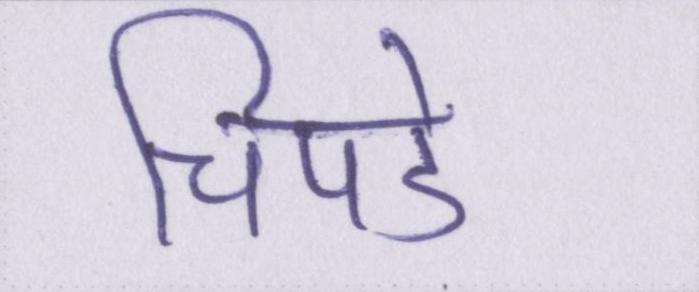 चिपडे